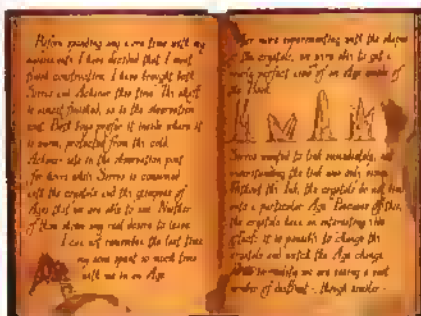 Before spending any more time with my
I have decided that I must
finish construction. I have brought both
Sirrus and Achenar this time. The
is almost finished, as is the observation
Both boys prefer it inside where it
is warm, protected from the cold.
Achenar sits in the observation
for hours while Sirrus is consumed
with the crystals and the glimpses of
Ages that we are able to see. Neither
of them show any real desire to leave.
I can not remember the last time
my sons spent so much time
with me in an Age.
After more experimenting with the shapes
of the crystals, we were able to get a
nearly perfect view of an Age
Sirrus wanted to link immediately, not
understanding the link was only
Without the the crystals do not
onto a particular Age. Because of this,
the crystals have an interesting
effect: it is possible to change the
crystals and watch the Age change
we are seeing a vast
number of different - though similar -